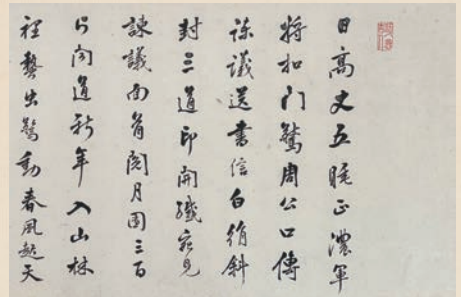 日高丈五睡正濃軍
將扣門驚周公口傳
諫議送書信白絹斜
封三道印開緘宛見
諫議面首閱月團三百
片聞道新年入山林
裡蟄虫驚動春風起天